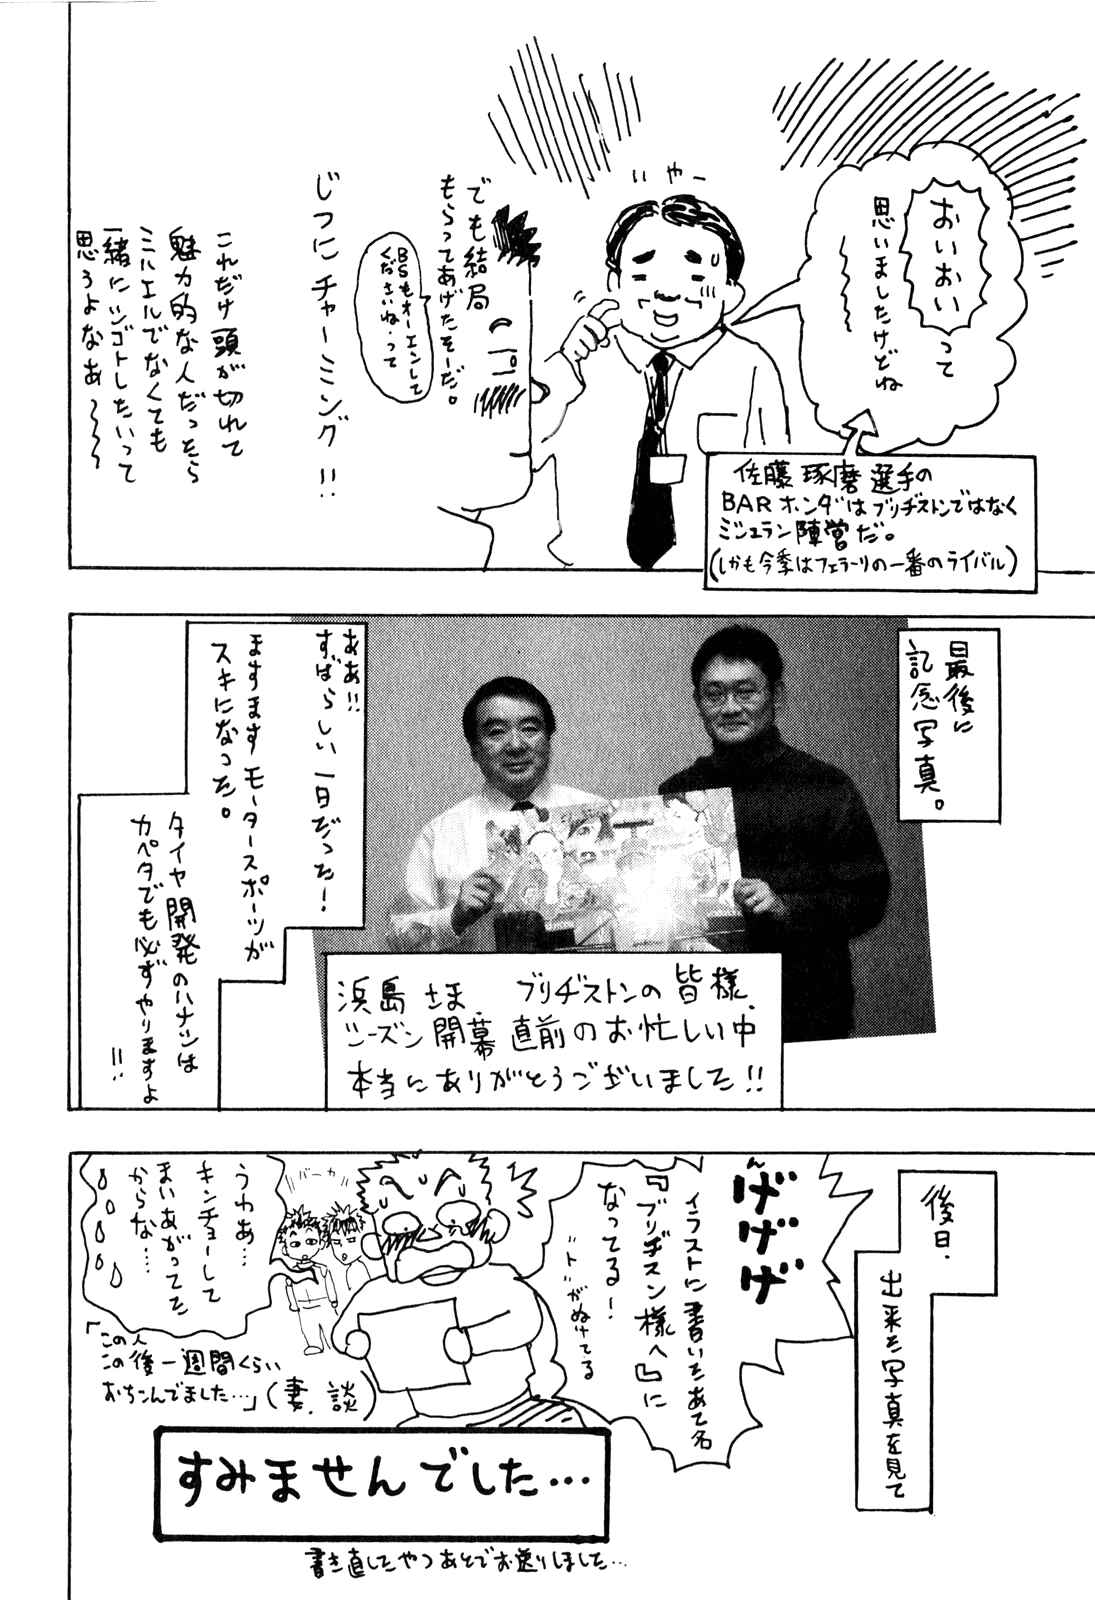 いやー
おいおいって
思いましたけどね
佐藤琢磨選手の
BARホンダはブリヂストンではなく
ミシュラン陣営だ。
(しかも今季はフェラーリの一番のライバル)
でも結局
もらってあげたそーだ。
BSもオーエンして
くださいね。って
じつにチャーミング!!
これだけ頭が切れて
魅力的な人だったら
ミハエルでなくても
一緒にシゴトしたいって
思うよなあ〜〜〜
最後に
記念写真。
ああ!!
すばらしい一日だった!
ますますモータースポーツが
スキになった。
タイヤ開発のハナシは
カペタでも必ずやりますよ
!!
浜島さま、ブリヂストンの皆様、
シーズン開幕直前のお忙しい中
本当にありがとうございました!!
後日、
出来た写真を見て
んげげげ
イラストに書いたあて名
『ブリヂスン様へ』に
なってる!
"ト"がぬけてる
バーカ
うわあ…
キンチョーして
まいあがってた
からな…
「この人
この後一週間くらい
おちこんでました…」(妻、談)
すみませんでした…
書き直したやつあとでお送りしました…